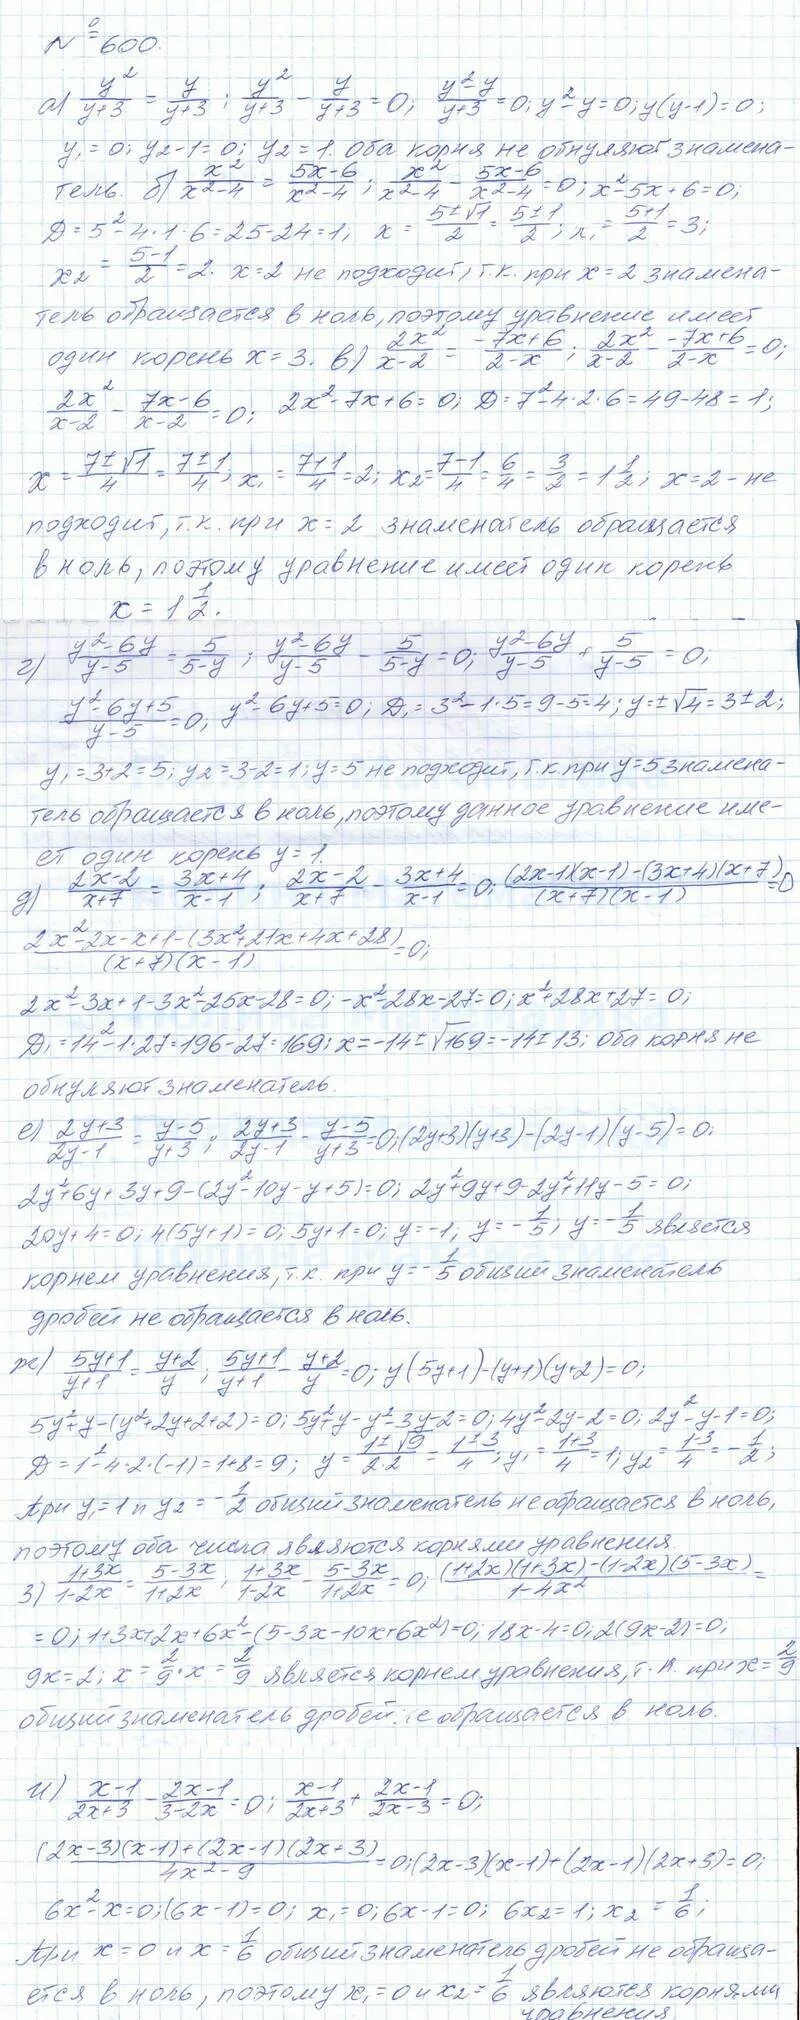 № 600.
а) y²/(y+3) = y/(y+3); y²/(y+3) − y/(y+3) = 0; (y²−y)/(y+3) = 0; y²−y=0; y(y−1)=0;
y₁=0; y₂−1=0; y₂=1. Оба корня не обнуляют знамена-
тель. б) x²/(x²−4) = (5x−6)/(x²−4); x²/(x²−4) − (5x−6)/(x²−4) = 0; x²−5x+6=0;
D=5²−4·1·6=25−24=1; x = (5±√1)/2 = (5±1)/2; x₁ = (5+1)/2 = 3;
x₂ = (5−1)/2 = 2. x=2 не подходит, т.к. при x=2 знамена-
тель обращается в ноль, поэтому уравнение имеет
один корень x=3. в) 2x²/(x−2) = (−7x+6)/(2−x); 2x²/(x−2) − (−7x+6)/(2−x) = 0;
2x²/(x−2) − (7x−6)/(x−2) = 0; 2x²−7x+6=0; D=7²−4·2·6=49−48=1;
x = (7±√1)/4 = (7±1)/4; x₁ = (7+1)/4 = 2; x₂ = (7−1)/4 = 6/4 = 3/2 = 1 1/2; x=2 – не
подходит, т.к. при x=2 знаменатель обращается
в ноль, поэтому уравнение имеет один корень
x = 1 1/2.
г) (y²−6y)/(y−5) = 5/(5−y); (y²−6y)/(y−5) − 5/(5−y) = 0; (y²−6y)/(y−5) + 5/(y−5) = 0;
(y²−6y+5)/(y−5) = 0; y²−6y+5=0; D₁=3²−1·5=9−5=4; y=±√4=3±2;
y₁=3+2=5; y₂=3−2=1; y=5 не подходит, т.к. при y=5 знамена-
тель обращается в ноль, поэтому данное уравнение име-
ет один корень y=1.
д) (2x−2)/(x+7) = (3x+4)/(x−1); (2x−2)/(x+7) − (3x+4)/(x−1) = 0; ((2x−1)(x−1)−(3x+4)(x+7))/((x+7)(x−1)) = 0
(2x²−2x−x+1−(3x²+21x+4x+28))/((x+7)(x−1)) = 0;
2x²−3x+1−3x²−25x−28=0; −x²−28x−27=0; x²+28x+27=0;
D₁=14²−1·27=196−27=169; x=−14±√169=−14±13; оба корня не
обнуляют знаменатель.
е) (2y+3)/(2y−1) = (y−5)/(y+3); (2y+3)/(2y−1) − (y−5)/(y+3) = 0; (2y+3)(y+3)−(2y−1)(y−5)=0;
2y²+6y+3y+9−(2y²−10y−y+5)=0; 2y²+9y+9−2y²+11y−5=0;
20y+4=0; 4(5y+1)=0; 5y+1=0; y=−1; y=−1/5; y=−1/5 является
корнем уравнения, т.к. при y=−1/5 общий знаменатель
дробей не обращается в ноль.
ж) (5y+1)/(y+1) = (y+2)/y; (5y+1)/(y+1) − (y+2)/y = 0; y(5y+1)−(y+1)(y+2)=0;
5y²+y−(y²+2y+2+2)=0; 5y²+y−y²−3y−2=0; 4y²−2y−2=0; 2y²−y−1=0;
D=1²−4·2·(−1)=1+8=9; y = (1±√9)/(2·2) = (1±3)/4; y₁ = (1+3)/4 = 1; y₂ = (1−3)/4 = −1/2;
При y₁=1 и y₂=−1/2 общий знаменатель не обращается в ноль,
поэтому оба числа являются корнями уравнения.
з) (1+3x)/(1−2x) = (5−3x)/(1+2x); (1+3x)/(1−2x) − (5−3x)/(1+2x) = 0; ((1+2x)(1+3x)−(1−2x)(5−3x))/(1−4x²) =
=0; 1+3x+2x+6x²−(5−3x−10x+6x²)=0; 18x−4=0; 2(9x−2)=0;
9x=2; x=2/9. x=2/9 является корнем уравнения, т.к. при x=2/9
общий знаменатель дробей не обращается в ноль.
и) (x−1)/(2x+3) − (2x−1)/(3−2x) = 0; (x−1)/(2x+3) + (2x−1)/(2x−3) = 0;
((2x−3)(x−1)+(2x−1)(2x+3))/(4x²−9) = 0; (2x−3)(x−1)+(2x−1)(2x+3)=0;
6x²−x=0; (6x−1)=0; x₁=0; 6x−1=0; 6x₂=1; x₂=1/6;
При x=0 и x=1/6 общий знаменатель дробей не обраща-
ется в ноль, поэтому x₁=0 и x₂=1/6 являются корнями
уравнения.